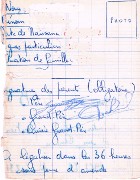 Nom:
Prénom
Date de Naissance:
Signe particulier:
Situation de famille:
PHOTO
Signature des parents (obligatoire)
Père
Grand-Père
Arrière Grand-Père
à légaliser dans les 36 heures
sous peine d'amende